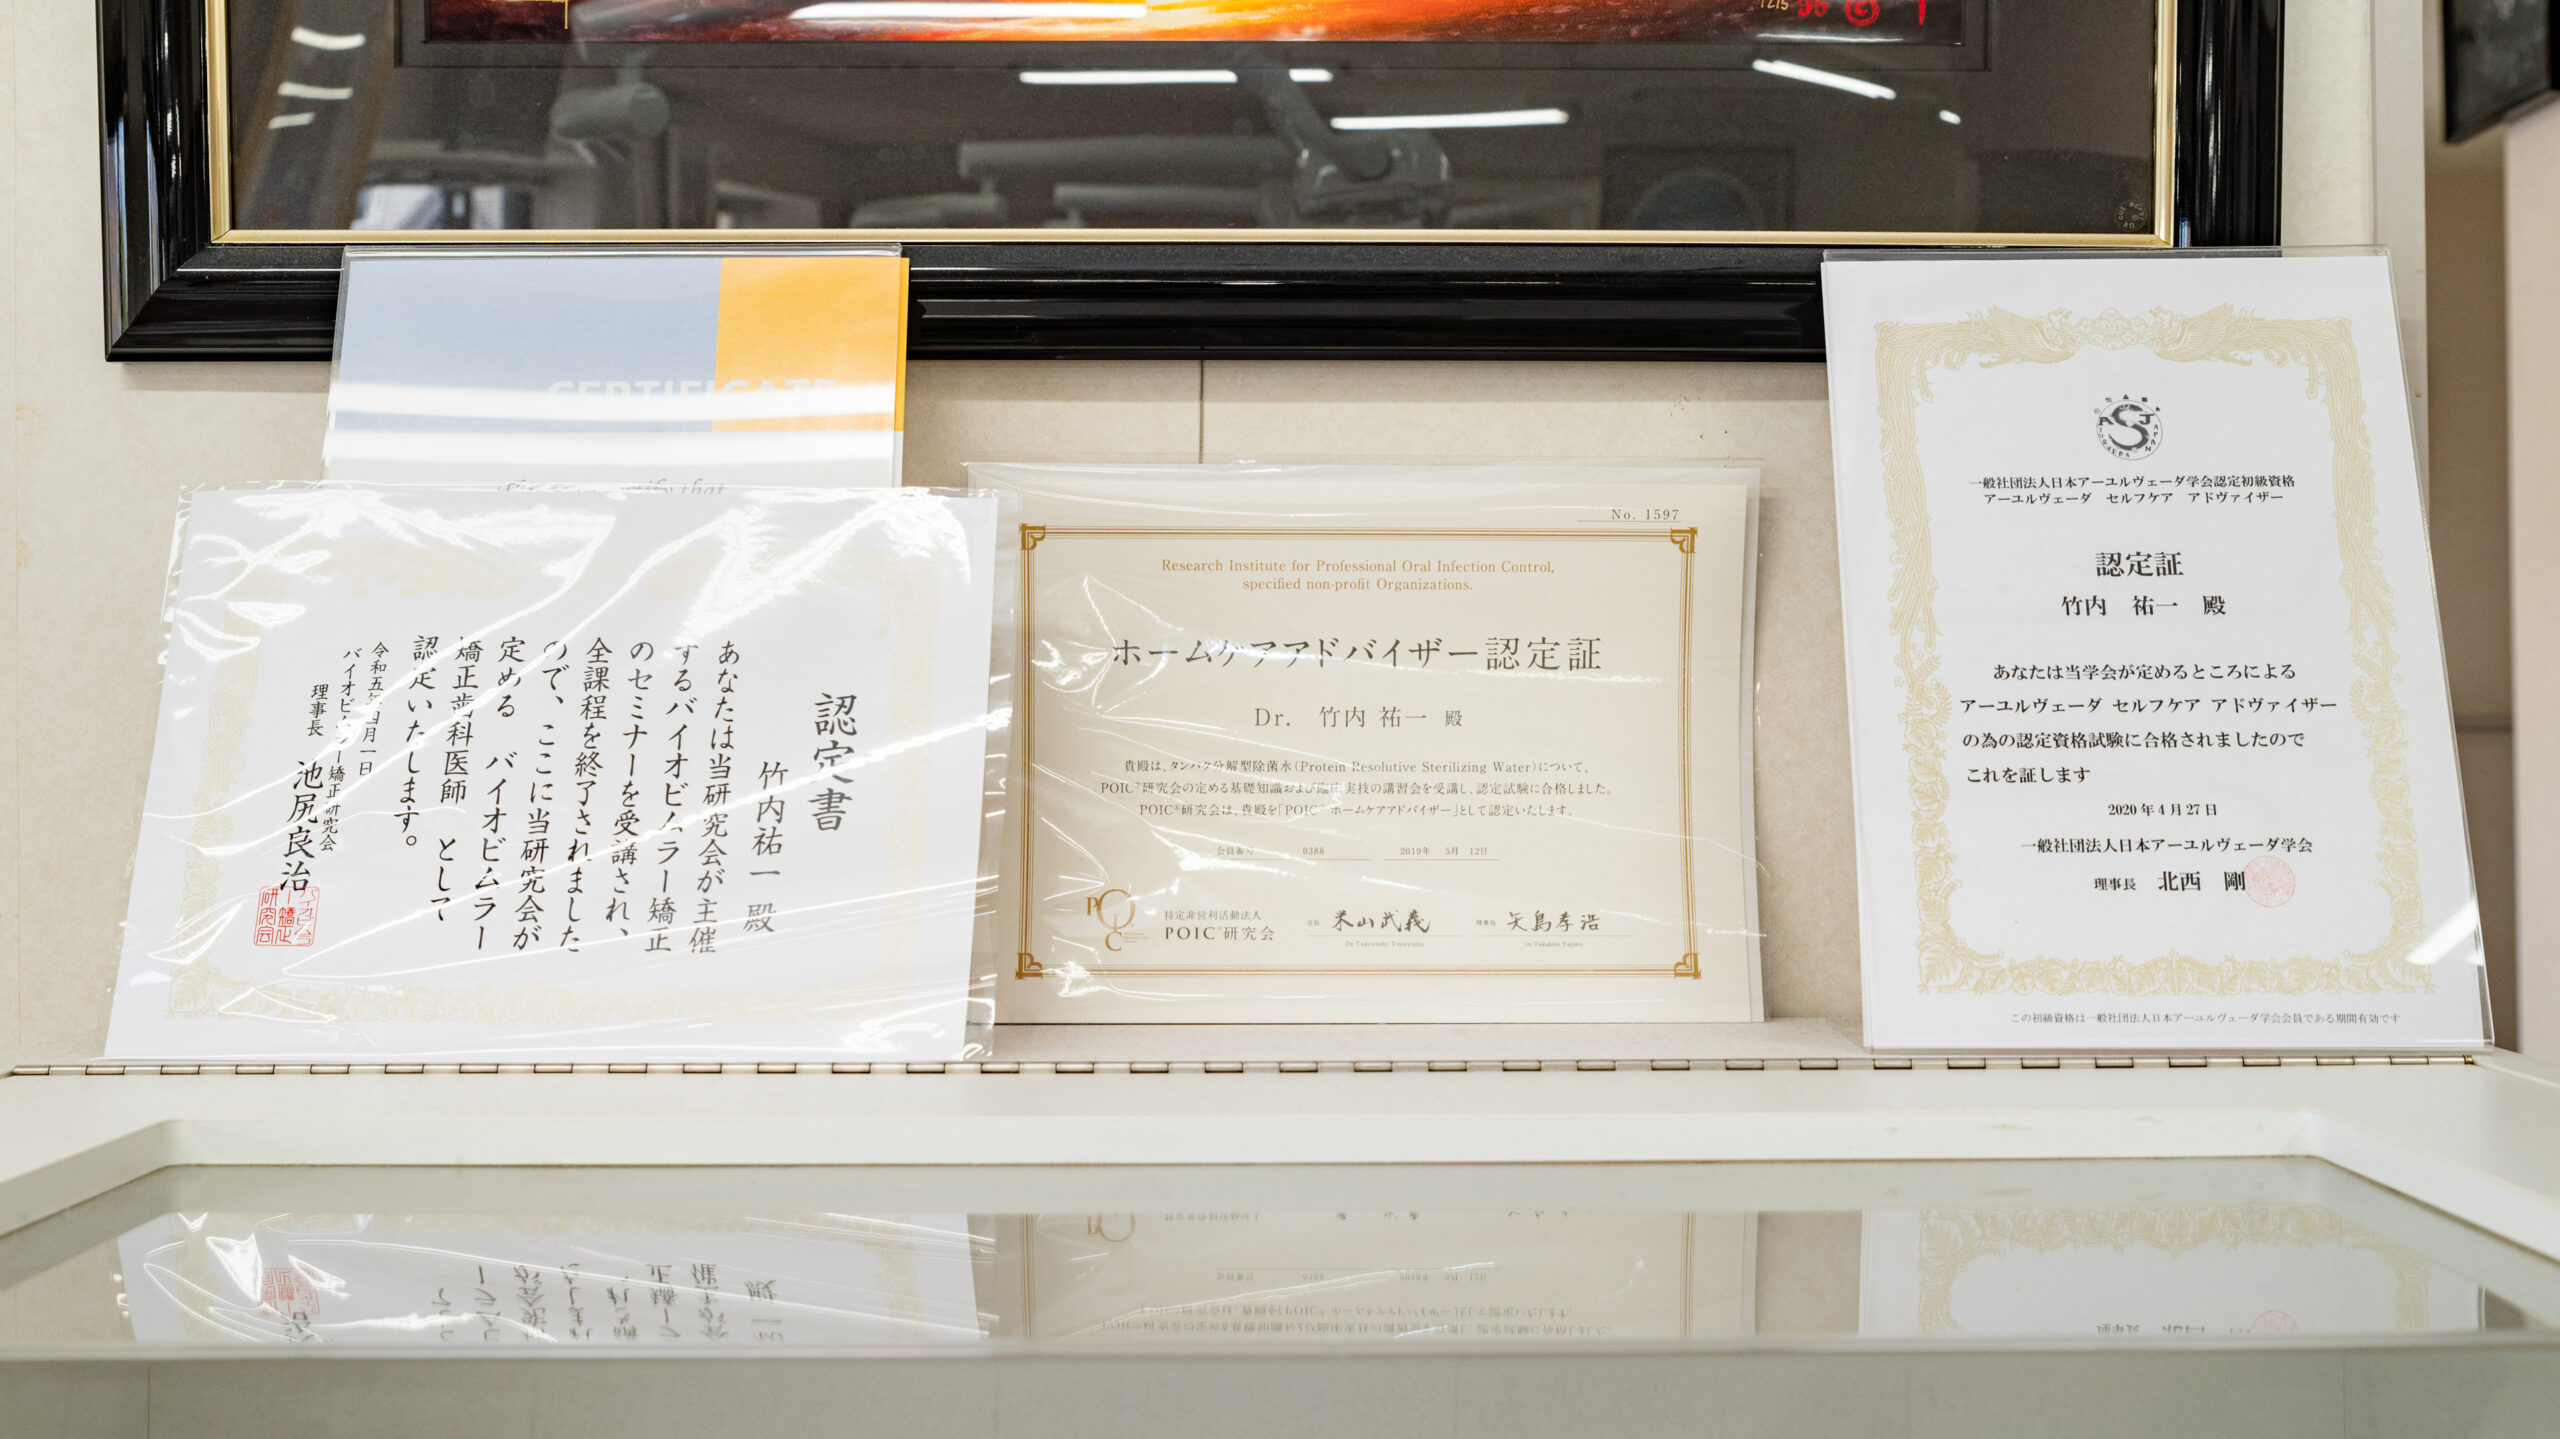 CERTIFICATE
認定書
竹内祐一 殿
あなたは当研究会が主催
するバイオビムラー矯正
のセミナーを受講され、
全課程を終了されました
ので、ここに当研究会が
定める バイオビムラー
矯正歯科医師 として
認定いたします。
令和五年四月一日
バイオビムラー矯正研究会
理事長 池尻良治
No. 1597
Research Institute for Professional Oral Infection Control,
specified non-profit Organizations.
ホームケアアドバイザー認定証
Dr. 竹内 祐一 殿
貴殿は、タンパク分解型除菌水(Protein Resolutive Sterilizing Water)について、
POIC®研究会の定める基礎知識および臨床実技の講習会を受講し、認定試験に合格しました。
POIC®研究会は、貴殿を「POIC® ホームケアアドバイザー」として認定いたします。
会員番号 0388 2019年 5月 12日
POIC
特定非営利活動法人
POIC®研究会
会長 米山武義
Dr.Takeyoshi Yoneyama
理事長 矢島孝浩
Dr.Takahiro Yajima
一般社団法人日本アーユルヴェーダ学会認定初級資格
アーユルヴェーダ セルフケア アドヴァイザー
認定証
竹内 祐一 殿
あなたは当学会が定めるところによる
アーユルヴェーダ セルフケア アドヴァイザー
の為の認定資格試験に合格されましたので
これを証します
2020年4月27日
一般社団法人日本アーユルヴェーダ学会
理事長 北西 剛
この初級資格は一般社団法人日本アーユルヴェーダ学会会員である期間有効です